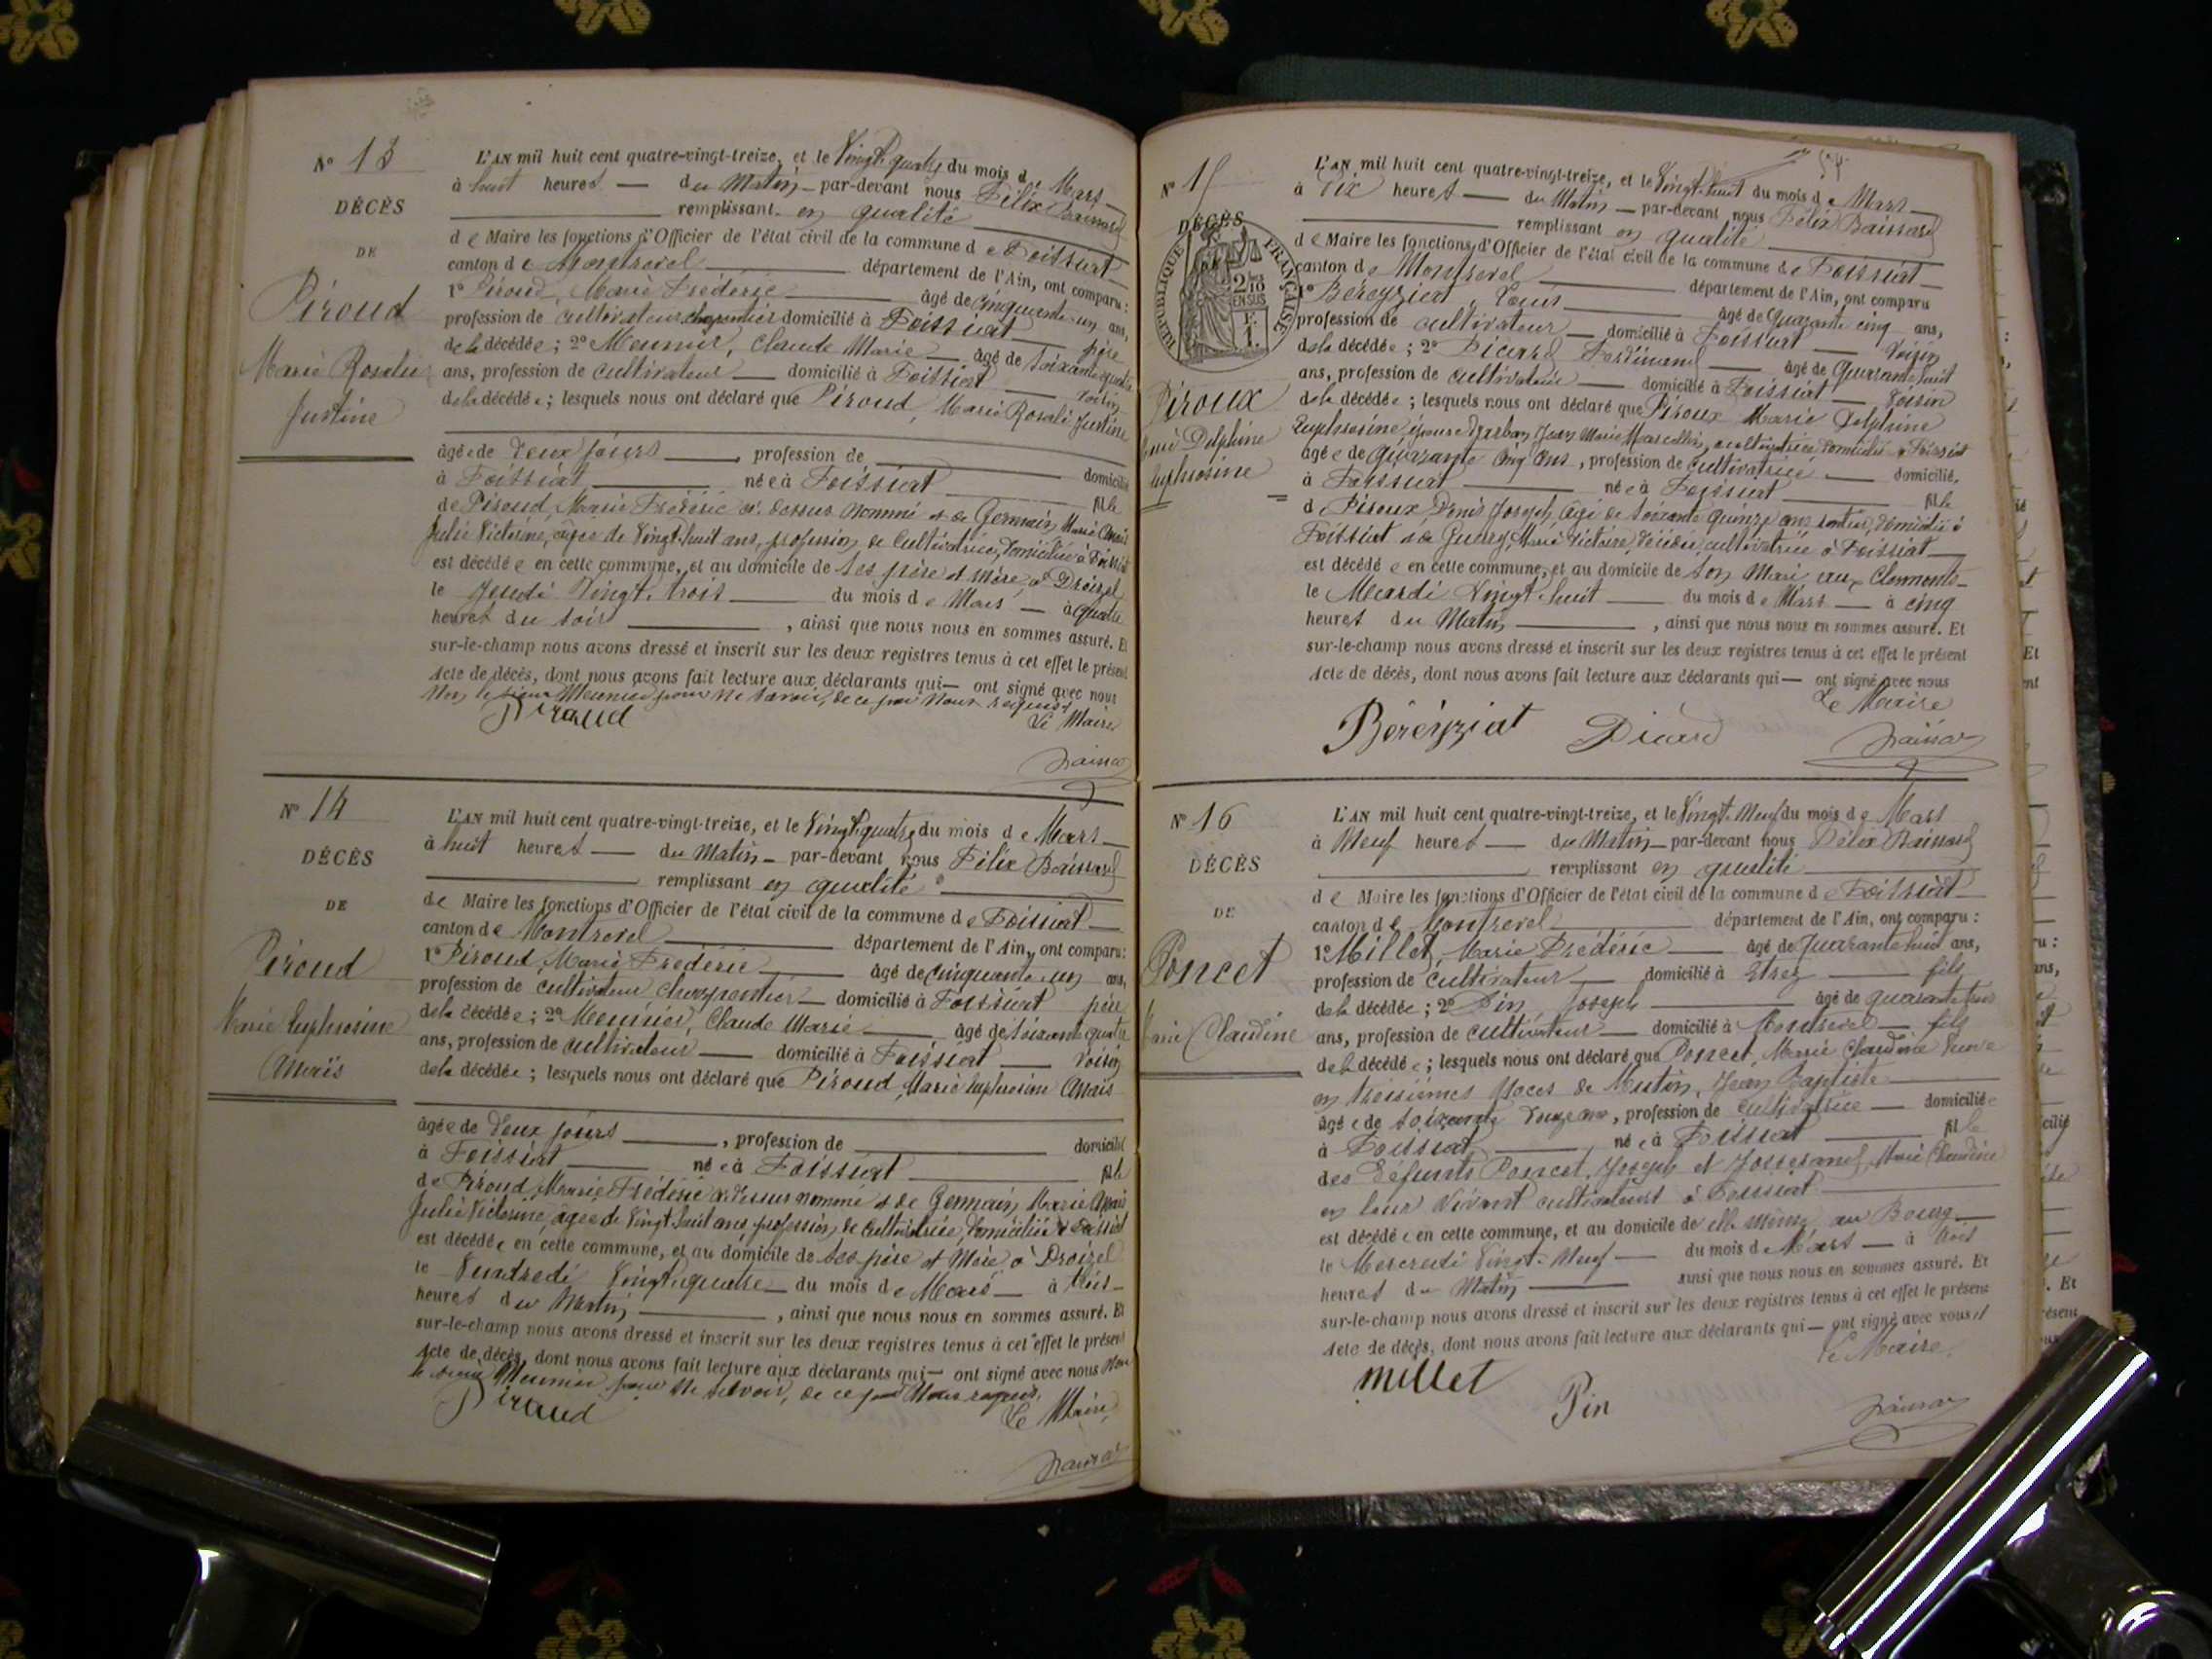 N° 13
DÉCÈS
DE
Piroud
Marie Rosalie
Justine
L'AN mil huit cent quatre-vingt-treize, et le Vingt quatre du mois de Mars
à huit heures du Matin par-devant nous Félix Baissard
remplissant en qualité
de Maire les fonctions d'Officier de l'état civil de la commune de Foissiat
canton de Montrevel département de l'Ain, ont comparu :
1° Piroud, Marie Frédéric âgé de Cinquante un ans,
profession de cultivateur charpentier domicilié à Foissiat père
de la décédée ; 2° Meunier, Claude Marie âgé de Soixante quatre
ans, profession de cultivateur domicilié à Foissiat Voisin
de la décédée ; lesquels nous ont déclaré que Piroud, Marie Rosalie Justine
âgée de Deux jours , profession de domicilié
à Foissiat née à Foissiat fille
de Piroud, Marie Frédéric ci-dessus nommé et de Germain, Marie
Julie Victorine, âgée de Vingt-huit ans, profession de Cultivatrice, domiciliée à Foissiat
est décédée en cette commune, et au domicile de ses père et mère, à Droizel
le Jeudi Vingt-trois du mois de Mars à quatre
heures du soir , ainsi que nous nous en sommes assuré. Et
sur-le-champ nous avons dressé et inscrit sur les deux registres tenus à cet effet le présent
acte de décès, dont nous avons fait lecture aux déclarants qui ont signé avec nous
Non le sieur Meunier pour ne savoir, de ce par Nous requis
Piroud
Le Maire
N° 14
DÉCÈS
DE
Piroud
Marie Euphrosine
Anaïs
L'AN mil huit cent quatre-vingt-treize, et le Vingt quatre du mois de Mars
à huit heures du Matin par-devant nous Félix Baissard
remplissant en qualité
de Maire les fonctions d'Officier de l'état civil de la commune de Foissiat
canton de Montrevel département de l'Ain, ont comparu :
1° Piroud, Marie Frédéric âgé de Cinquante un ans,
profession de cultivateur charpentier domicilié à Foissiat père
de la décédée ; 2° Meunier, Claude Marie âgé de soixante quatre
ans, profession de cultivateur domicilié à Foissiat Voisin
de la décédée ; lesquels nous ont déclaré que Piroud, Marie Euphrosine Anaïs
âgée de Deux jours , profession de domicilié
à Foissiat née à Foissiat fille
de Piroud, Marie Frédéric ci-dessus nommé et de Germain, Marie
Julie Victorine, âgée de Vingt huit ans, profession de Cultivatrice, domiciliée à Foissiat
est décédée en cette commune, et au domicile de ses père et Mère à Droizel
le Vendredi Vingt-quatre du mois de Mars à trois
heures du Matin , ainsi que nous nous en sommes assuré. Et
sur-le-champ nous avons dressé et inscrit sur les deux registres tenus à cet effet le présent
acte de décès, dont nous avons fait lecture aux déclarants qui ont signé avec nous Non
le sieur Meunier pour ne savoir, de ce par Nous requis.
Piroud
Le Maire
N° 15
DÉCÈS
RÉPUBLIQUE FRANÇAISE
2/10 EN SUS
F. 1.
Piroux
Marie Delphine
Euphrosine
L'AN mil huit cent quatre-vingt-treize, et le Vingt-huit du mois de Mars
à Dix heures du Matin par-devant nous Félix Baissard
remplissant en qualité
de Maire les fonctions d'Officier de l'état civil de la commune de Foissiat
canton de Montrevel département de l'Ain, ont comparu
1° Béréyziat, Louis âgé de Quarante cinq ans,
profession de cultivateur domicilié à Foissiat Voisin
de la décédée ; 2° Picard Ferdinand âgé de Quarante huit
ans, profession de cultivateur domicilié à Foissiat Voisin
de la décédée ; lesquels nous ont déclaré que Piroux Marie Delphine
Euphrosine, épouse Jean Marie Marcellin, cultivatrice domiciliée à Foissiat
âgée de Quarante cinq ans, profession de cultivatrice domicilié,
à Foissiat née à Foissiat fille
de Piroux, Denis Joseph, âgé de soixante quinze ans rentier, domicilié à
Foissiat et de Guerry, Marie Victoire, décédée, cultivatrice à Foissiat
est décédée en cette commune, et au domicile de son Mari aux Clermonts
le Mardi Vingt-huit du mois de Mars à cinq
heures du Matin , ainsi que nous nous en sommes assuré. Et
sur-le-champ nous avons dressé et inscrit sur les deux registres tenus à cet effet le présent
acte de décès, dont nous avons fait lecture aux déclarants qui ont signé avec nous
Le Maire
Béréyziat Picard
N° 16
DÉCÈS
DE
Poncet
Marie Claudine
L'AN mil huit cent quatre-vingt-treize, et le Vingt-Neuf du mois de Mars
à Neuf heures du Matin par-devant nous Félix Baissard
remplissant en qualité
de Maire les fonctions d'Officier de l'état civil de la commune de Foissiat
canton de Montrevel département de l'Ain, ont comparu :
1° Millet, Marie Frédéric âgé de quarante huit ans,
profession de cultivateur domicilié à Etrez fils
de la décédée ; 2° Pin, Joseph âgé de quarante trois
ans, profession de cultivateur domicilié à Montrevel fils
de la décédée ; lesquels nous ont déclaré que Poncet, Marie Claudine Veuve
en troisièmes Noces de Mutin, Jean Baptiste
âgée de soixante douze ans, profession de cultivatrice domiciliée
à Foissiat née à Foissiat fille
des Défunts Poncet, Joseph et Josserand, Marie Claudine
en leur vivant cultivateurs à Foissiat
est décédée en cette commune, et au domicile de elle même au Bourg
le Mercredi Vingt-Neuf du mois de Mars à trois
heures du Matin ainsi que nous nous en sommes assuré. Et
sur-le-champ nous avons dressé et inscrit sur les deux registres tenus à cet effet le présent
acte de décès, dont nous avons fait lecture aux déclarants qui ont signé avec nous
Le Maire
Millet
Pin